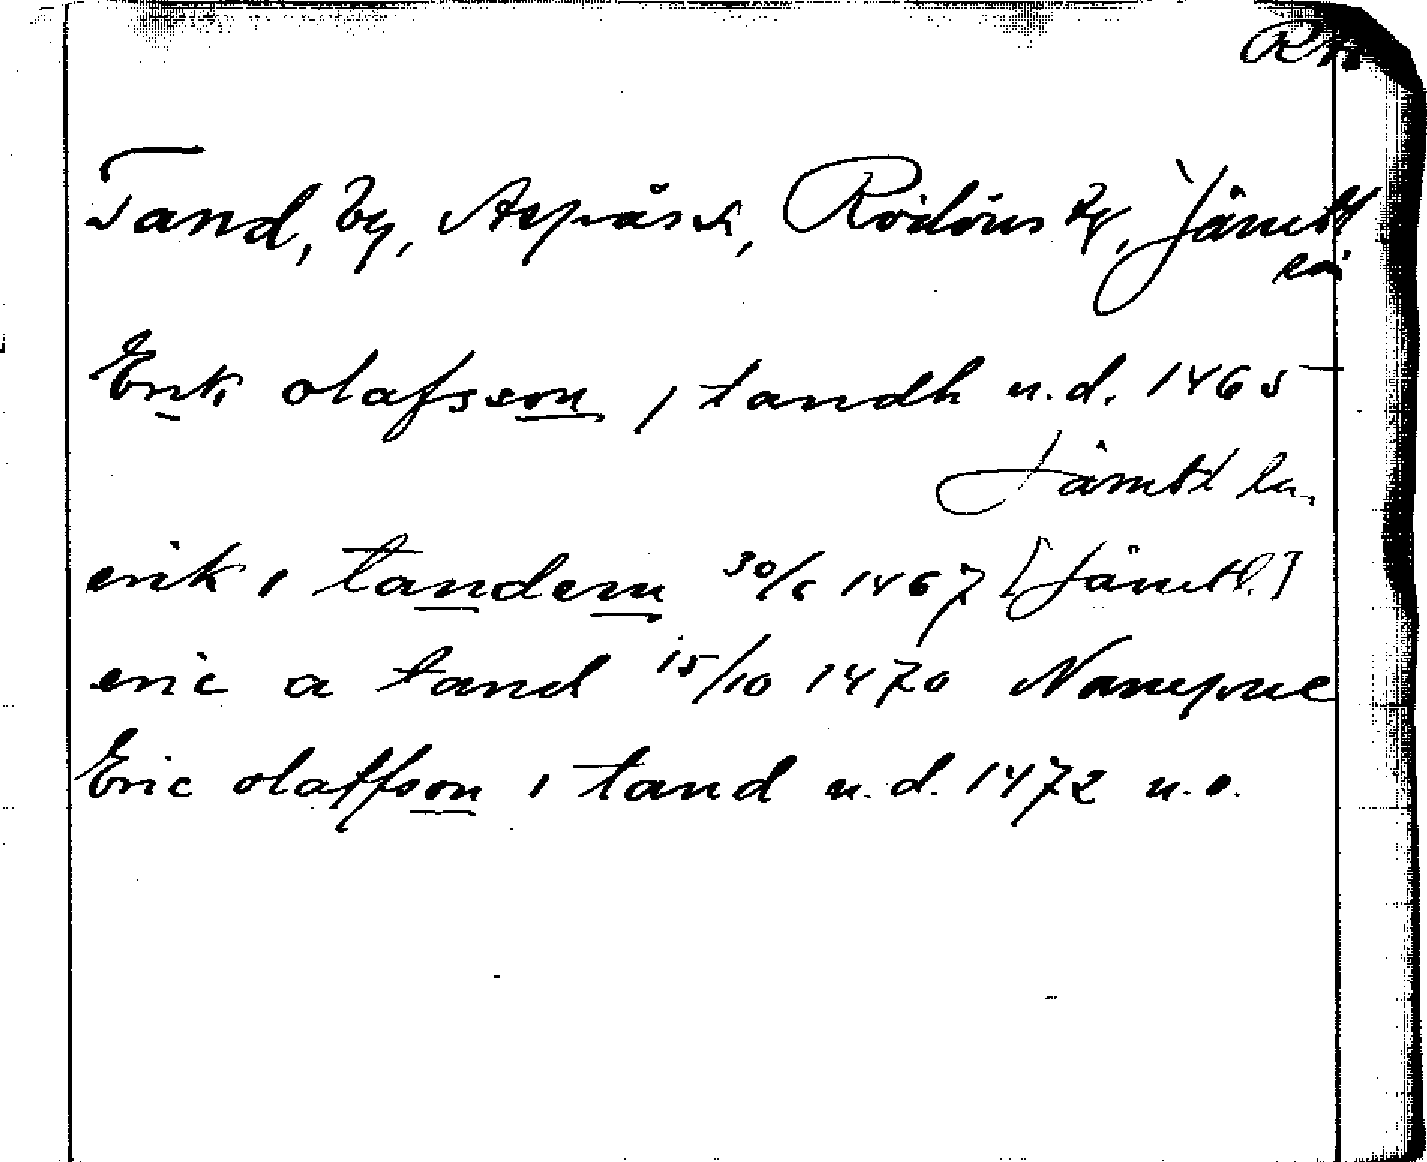 Tand, by, Aspås sn, Rödöns tg, Jämtl
län
Erik olafsson i tandh u.d. 1465
Jämtl
erik i tandem 30/6 1467 [Jämtl.]
eric a tand 15/10 1470
Eric olaffson i tand u.d. 1472 u.o.